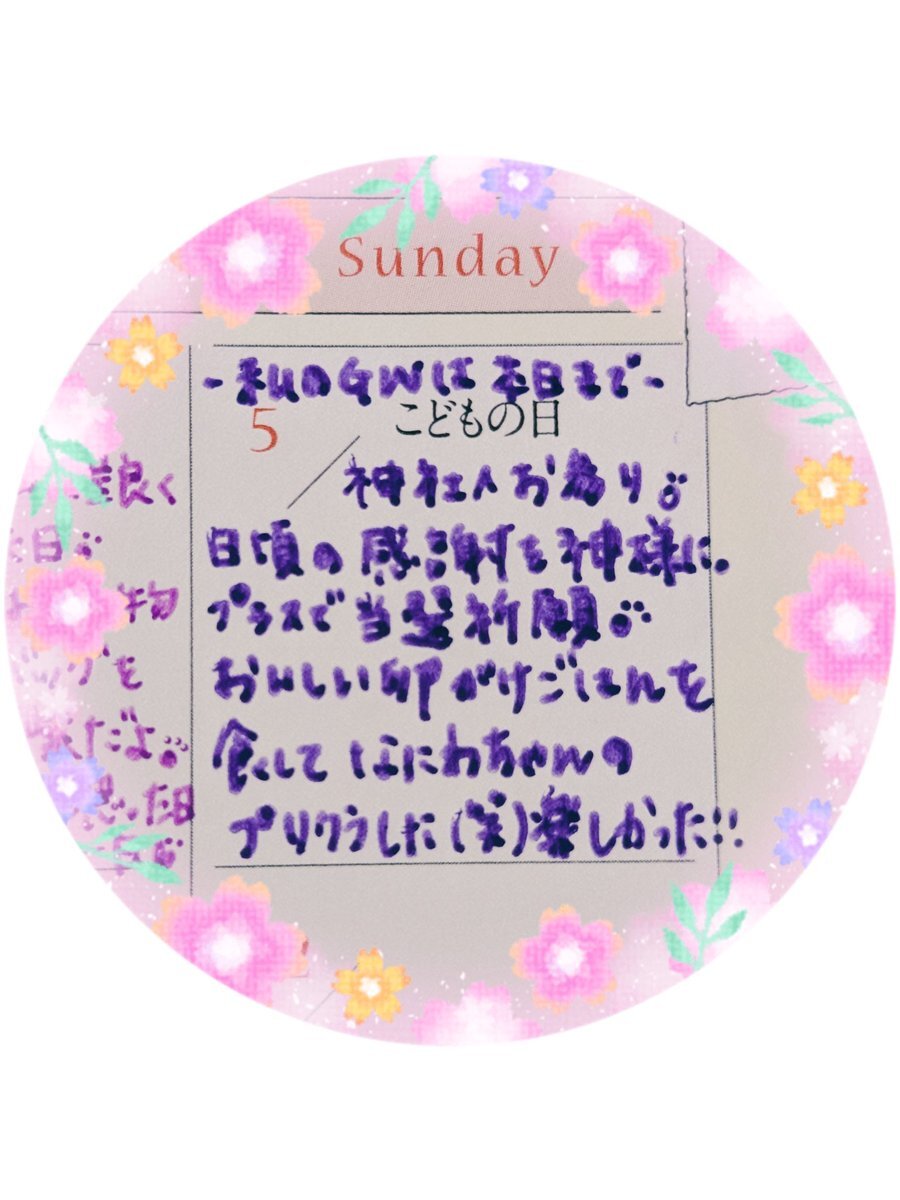 Sunday
-私のGWは本日まで-
5 こどもの日
神社へお参り
日頃の感謝を神様に。
プラスで当選祈願
おいしい卵かけごはんを
食してはにわちゃんの
プリクラした(笑)楽しかった!!
良く
日
物
を
だよ
った日